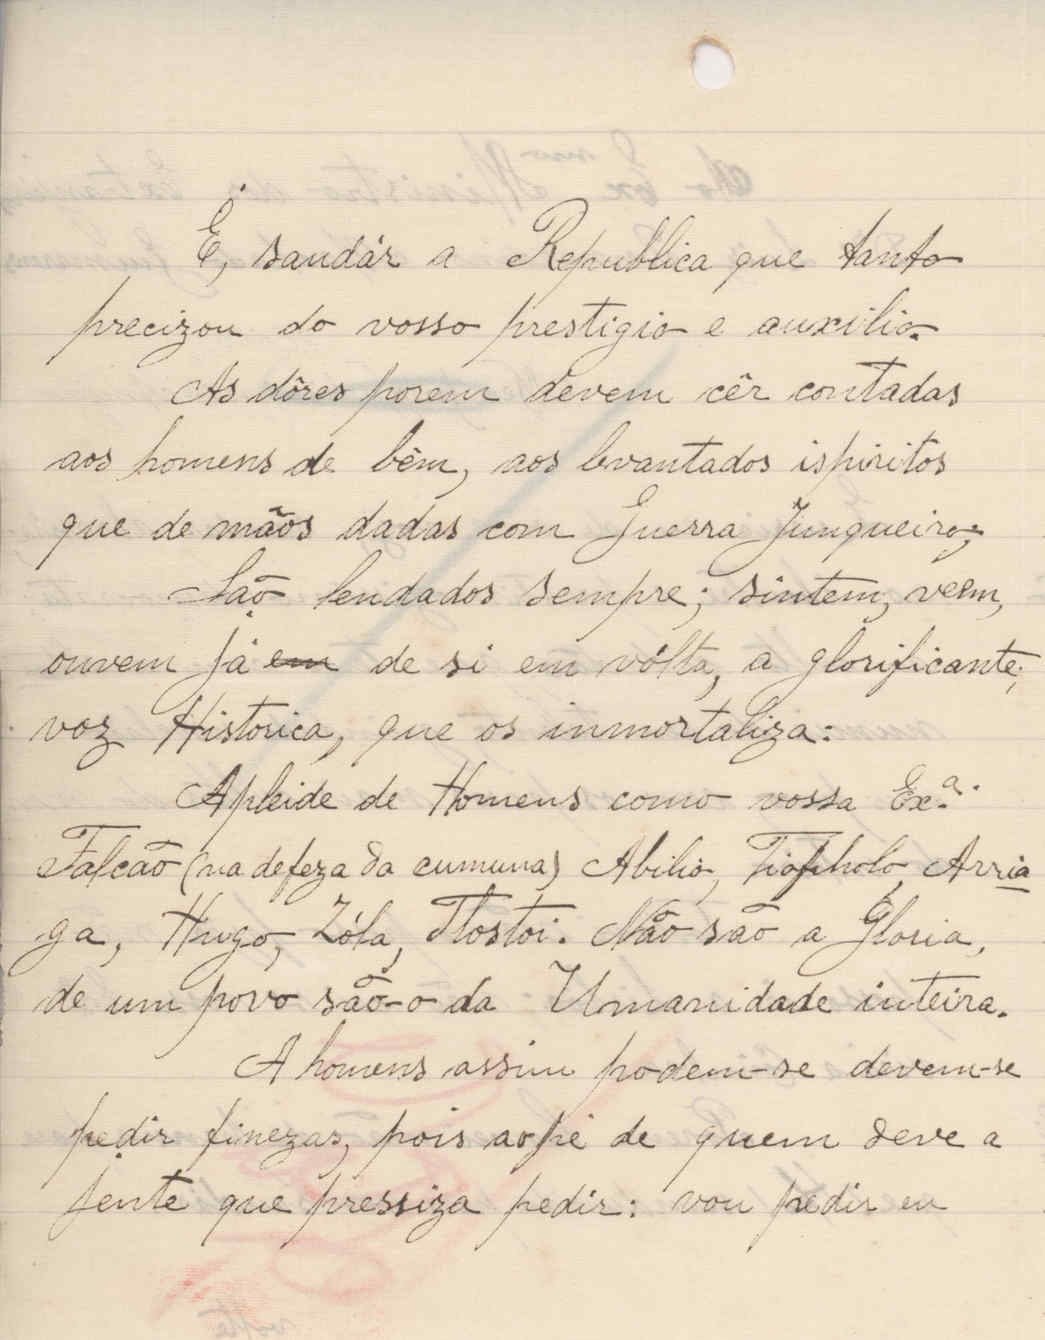 É, saudár a Republica que tanto
precizou do vosso prestigio e auxilio.
As dôres porem devem cêr contadas
aos homens de bêm, aos levantados ispiritos
que de mãos dadas com Guerra Junqueiro;
São lendados sempre; sintem, veem,
ouvem já em de si em vólta, a glorificante,
voz Historica, que os inmortaliza:
A pleide de Homens como vossa Ex.ª
Falcão (na defeza da cumuna) Abilio, Tiopholo, Arria
ga, Hugo, Zóla, Tlostoi. Não são a Gloria,
de um povo são-o da Umanidade inteira.
A homens assim podem-se devem-se
pedir finezas, pois ao pé de quem deve a
jente que pressiza pedir: vou pedir eu